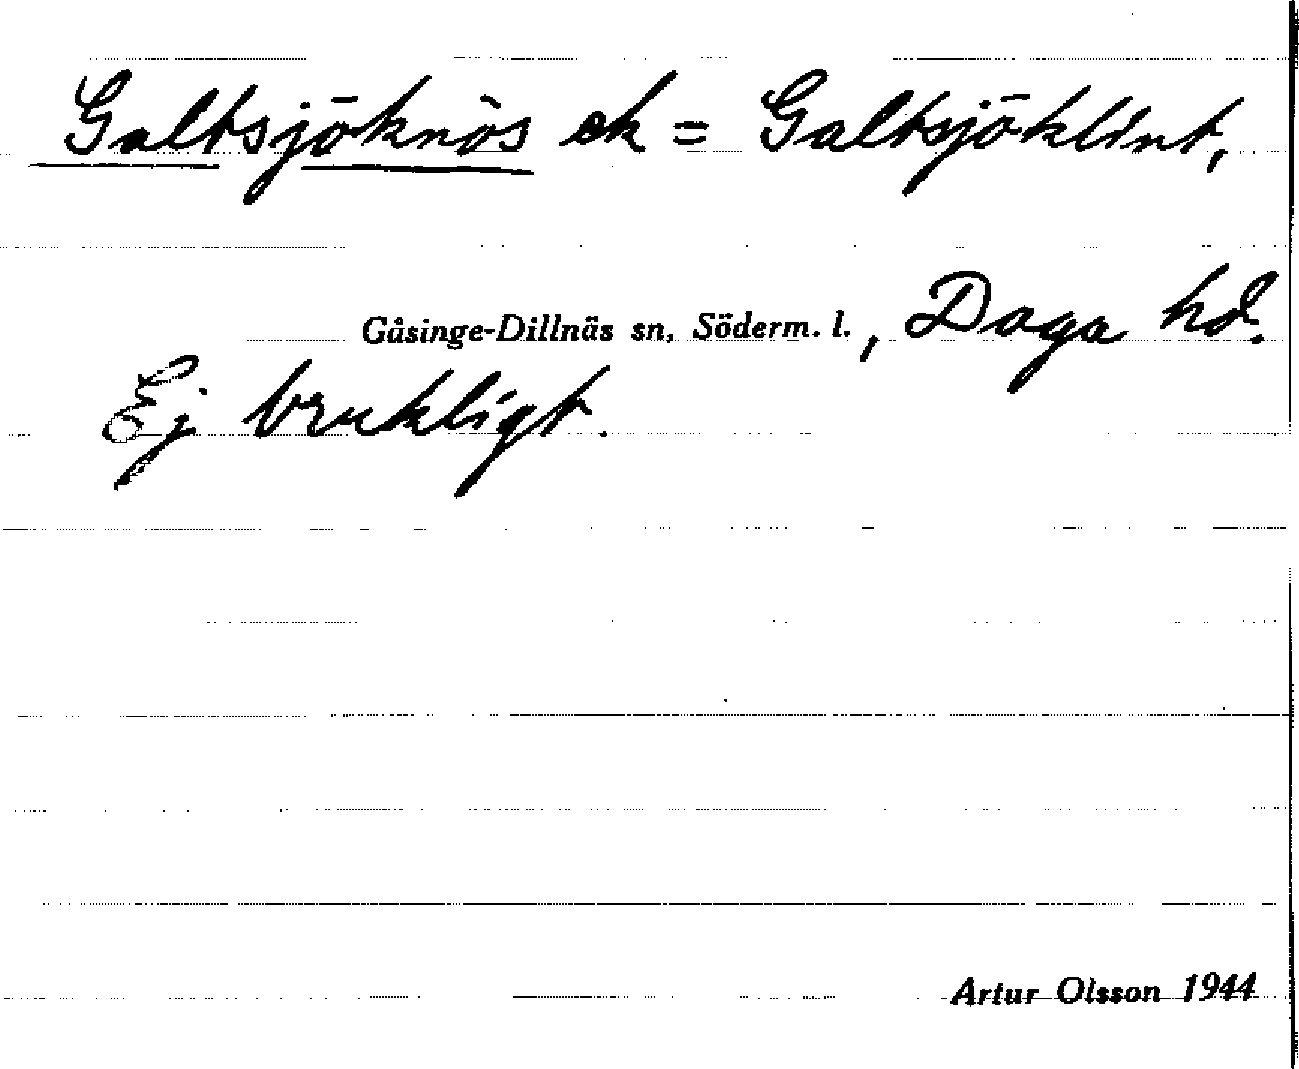 Galtsjöknös ek = Galtsjöklint,
Gåsinge-Dillnäs sn, Söderm. l., Daga hd.
Ej brukligt.
Artur Olsson 1944